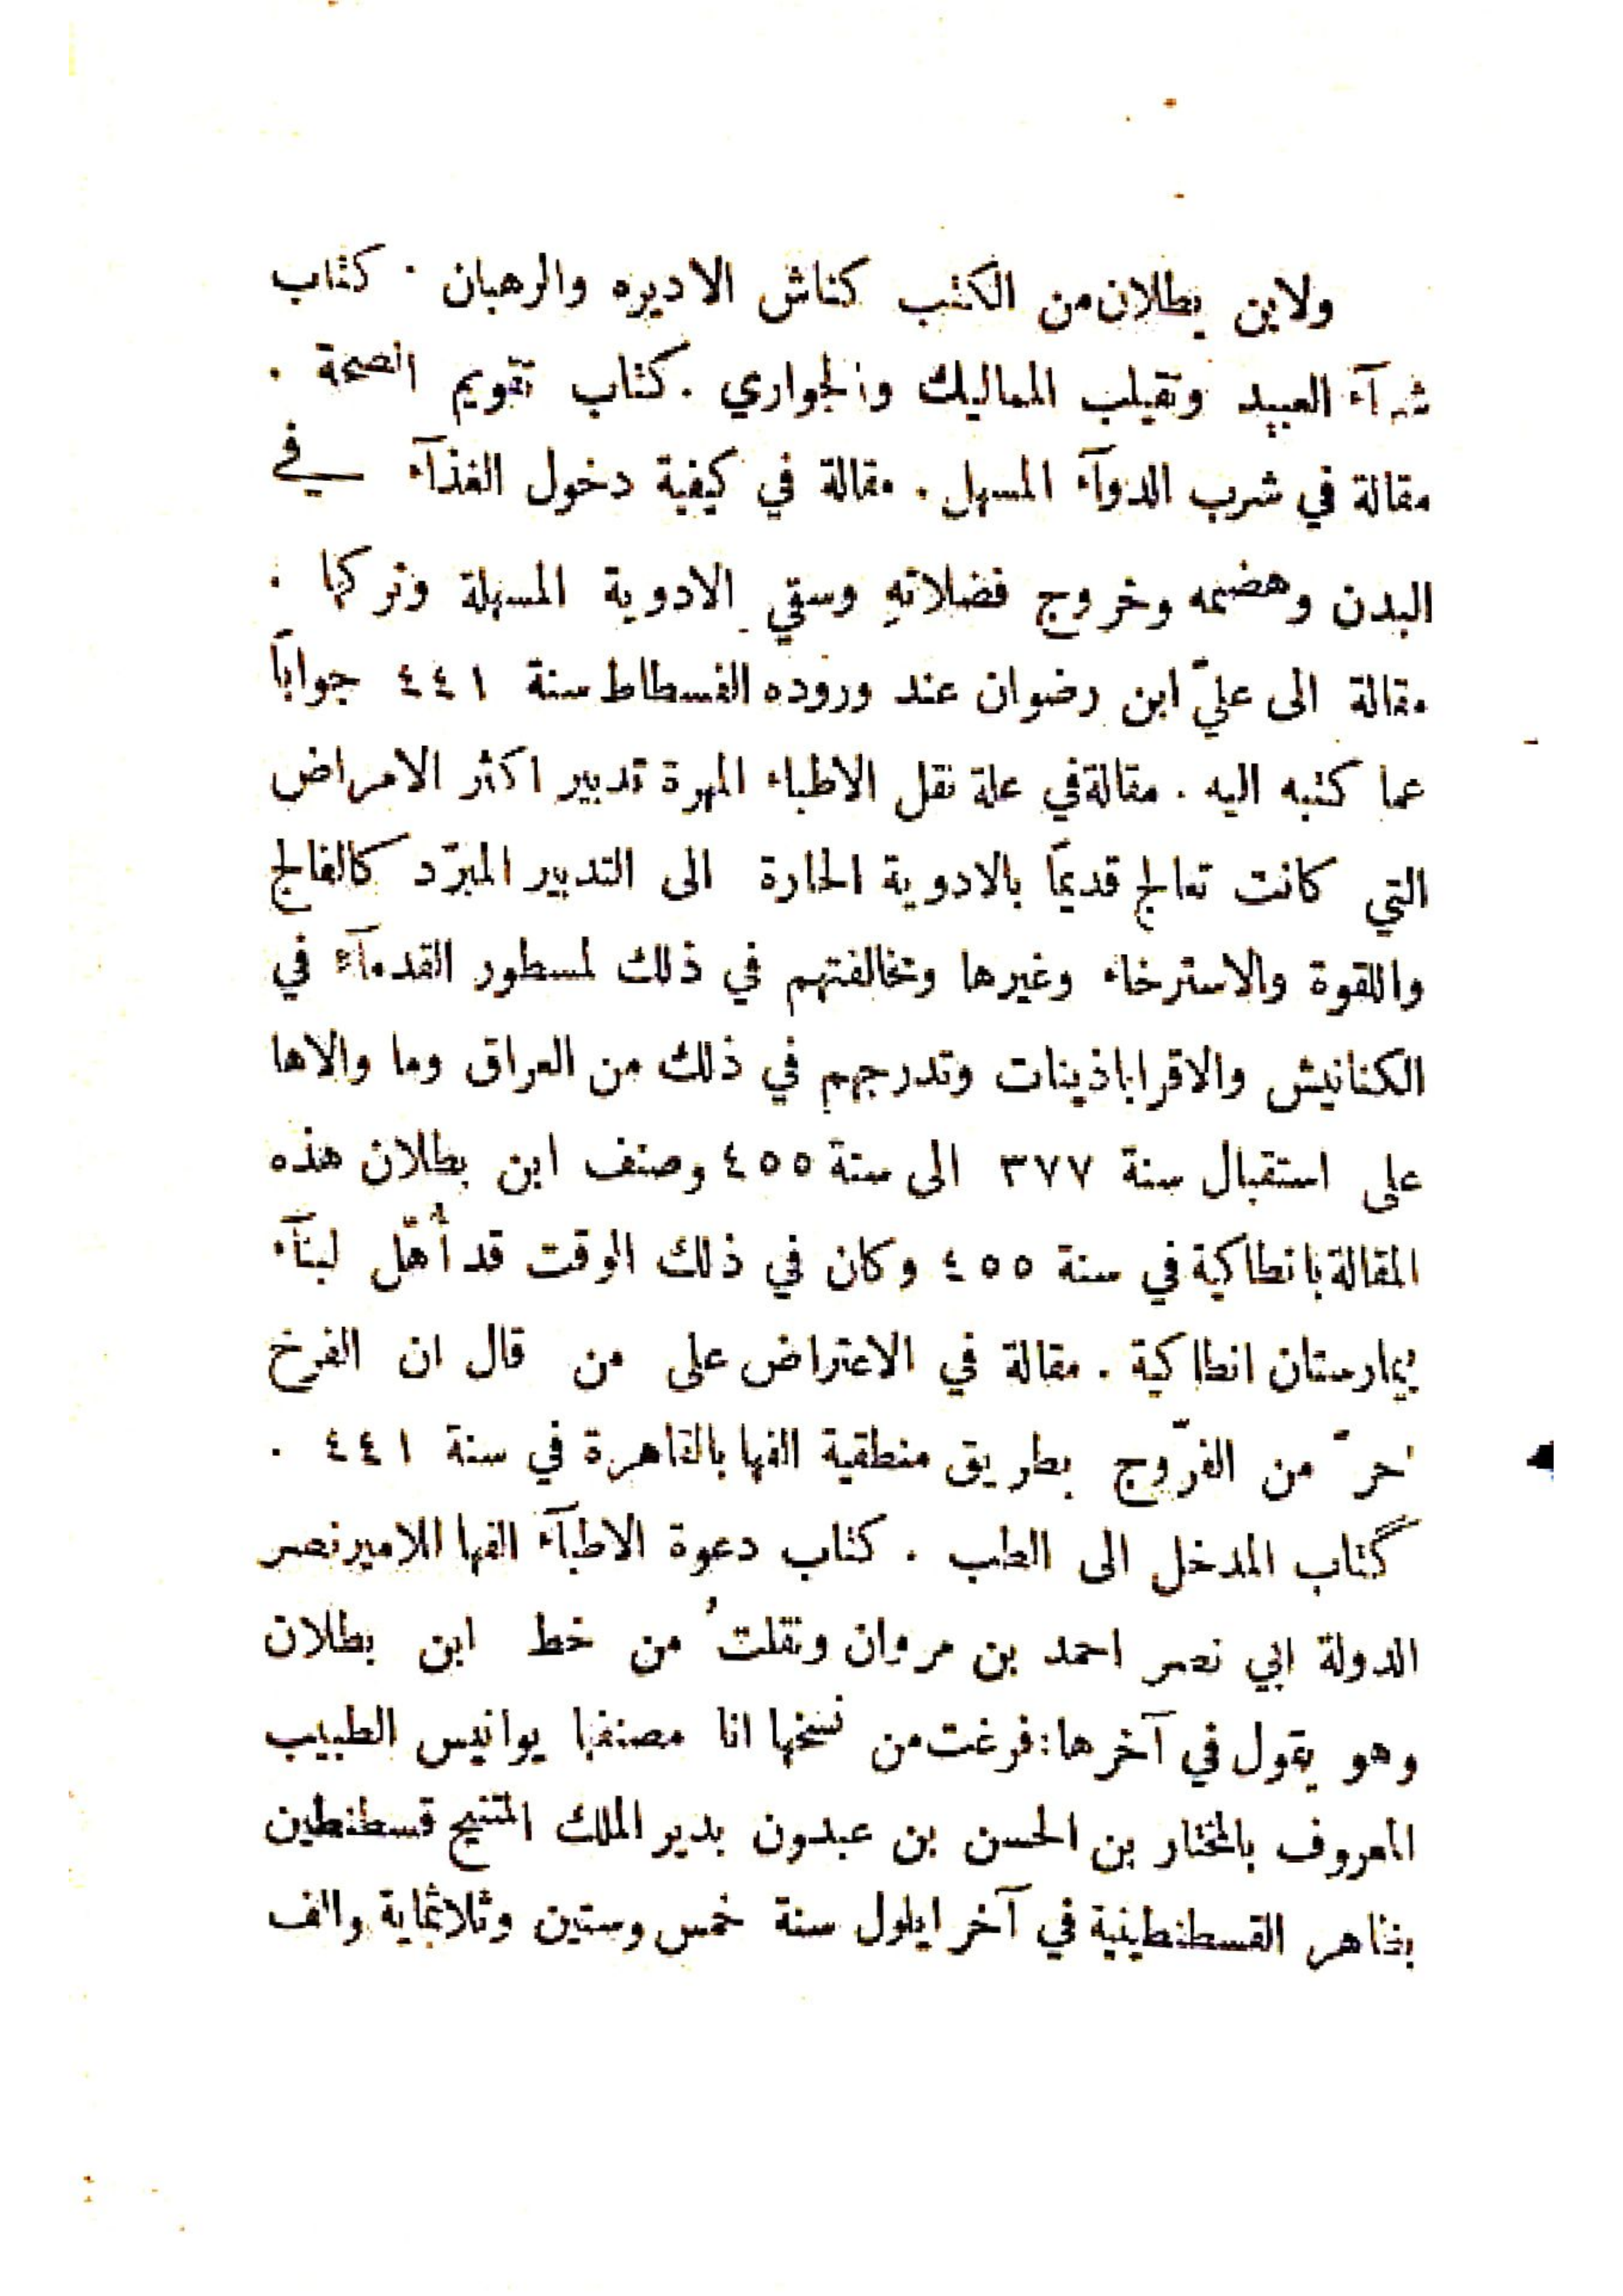 ولابن بطلان من الكتب كناش الاديره والرهبان . كتاب
شرآء العبيد وتقيلب المماليك والجواري . كتاب تقويم الصحة .
مقالة في شرب الدوآء المسهل . مقالة في كيفية دخول الغذآء في
البدن وهضمه وخروج فضلاتهِ وسقي الادوية المسهلة وتركبها .
مقالة الى عليّ ابن رضوان عند وروده الفسطاط سنة ٤٤١ جواباً
عما كتبه اليه . مقالة في علة نقل الاطباء المهرة تدبير اكثر الامراض
التي كانت تعالج قديماً بالادوية الحارة الى التدبير المبرّد كالفالج
واللقوة والاسترخاء وغيرها وتخالفتهم في ذلك لمسطور القدمآء في
الكنانيش والاقراباذينات وتدرجهم في ذلك من العراق وما والاها
على استقبال سنة ٣٧٧ الى سنة ٤٥٥ وصنف ابن بطلان هذه
المقالة بانطاكية في سنة ٤٥٥ وكان في ذلك الوقت قد أُهّل لبنآء
بيمارستان انطاكية . مقالة في الاعتراض على من قال ان الفرخ
احرّ من الفرّوج بطريق منطقية الفها بالقاهرة في سنة ٤٤١ .
كتاب المدخل الى الطب . كتاب دعوة الاطبآء الفها للامير نصر
الدولة ابي نصر احمد بن مروان ونقلتُ من خط ابن بطلان
وهو يقول في آخرها : فرغت من نسخها انا مصنفها يوانيس الطبيب
المعروف بالمختار بن الحسن بن عبدون بدير الملك المتنيح قسطنطين
بظاهر القسطنطينية في آخر ايلول سنة خمس وستين وثلاثماية والف